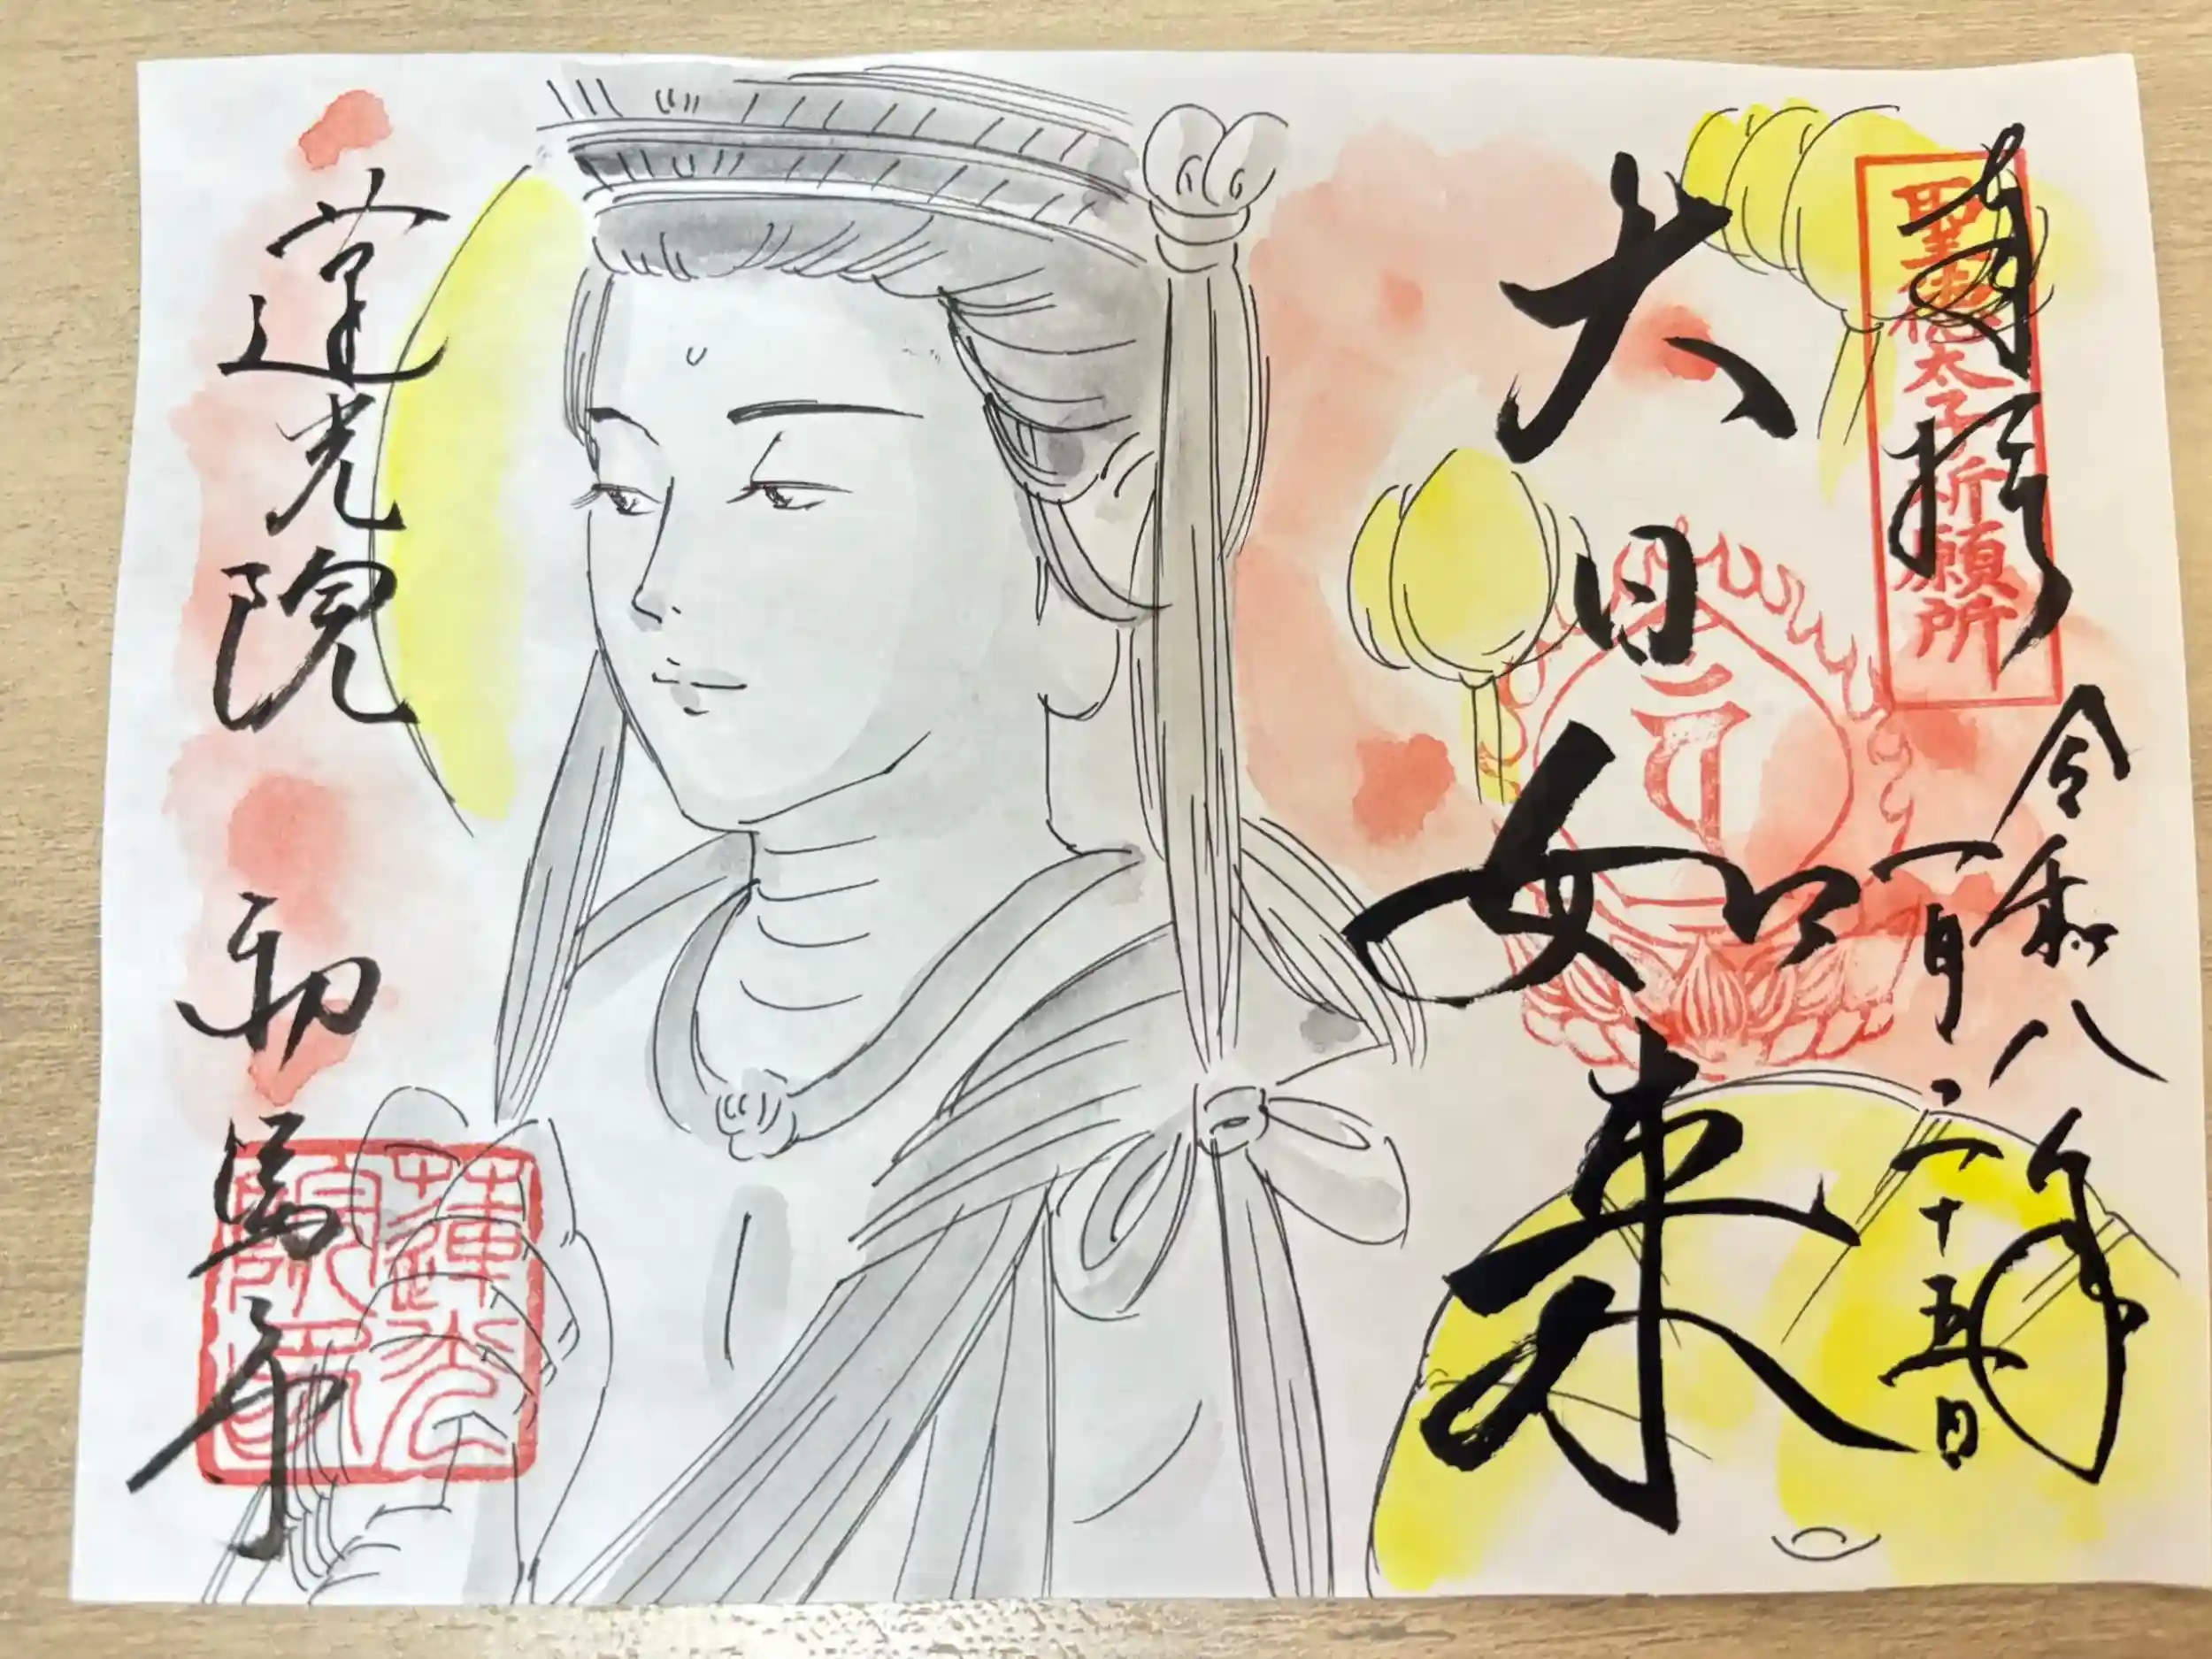 奉拝
聖徳太子祈願所
令和八年
一月二十五日
大日如来
蓮光院 初馬寺
蓮光
院印